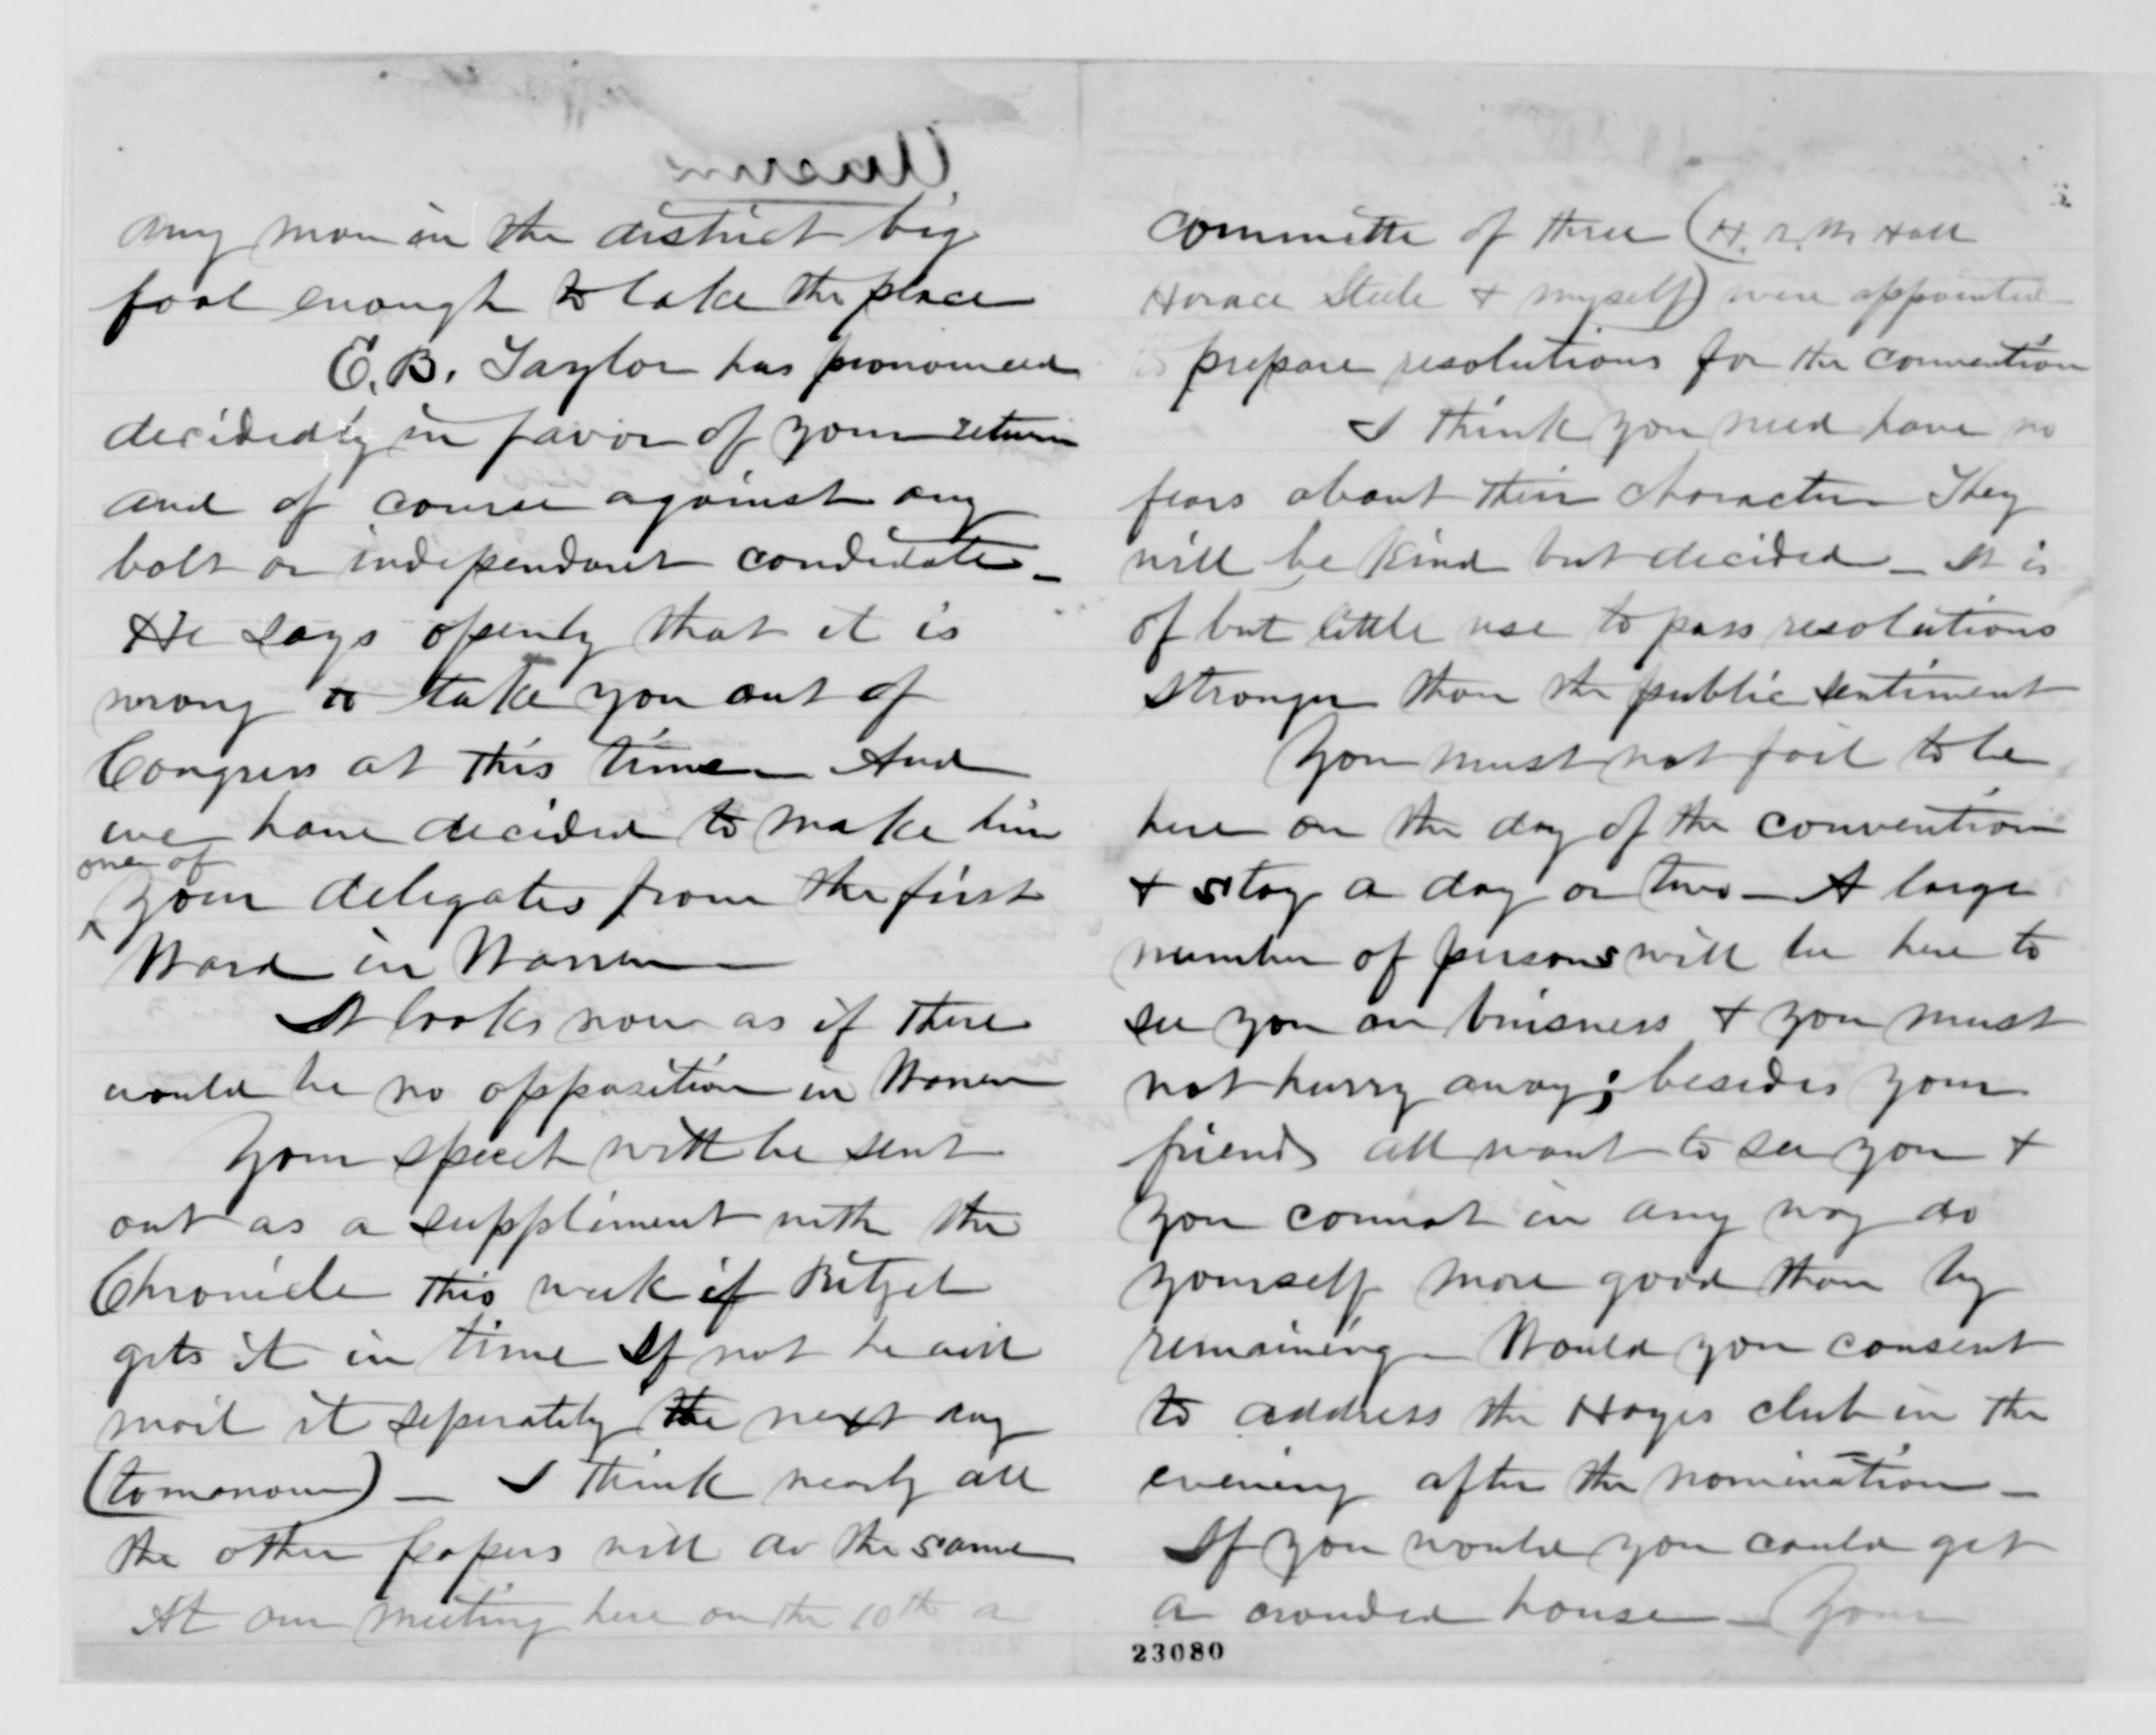 any man in the district big
fool enough to take the place
E. B. Taylor has pronounced
decidedly in favor of your return
and of course against any
bolt or independant candidate_
He says openly that it is
wrong to take you out of
Congress at this time_ And
we have decided to make him
one of
^ your delegates from the first
Ward in Warren_
It looks now as if there
would be no opposition in Warren
Your speech will be sent
out as a suppliment with the
Chronicle this week if Ritzel
gets it in time If not he will
mail it seperately the next day
(tomorrow)_ I think nearly all
the other papers will do the same
At our meeting here on the 10th a
committe of three (H. R. M Hall
Horace Steele + myself) were appointed
to prepare resolutions for the convention
I think you need have no
fears about their character They
will be kind but decided_ It is
of but little use to pass resolutions
stronger than the public sentiment
You must not fail to be
here on the day of the convention
+ stay a day or two_ A large
number of persons will be here to
see you on buisness + you must
not hurry away; besides your
friends all want to see you +
you cannot in any way do
yourself more good than by
remaining_ Would you consent
to address the Hayes club in the
evening after the nomination_
If you would you could get
a crowded house_ Your
23080